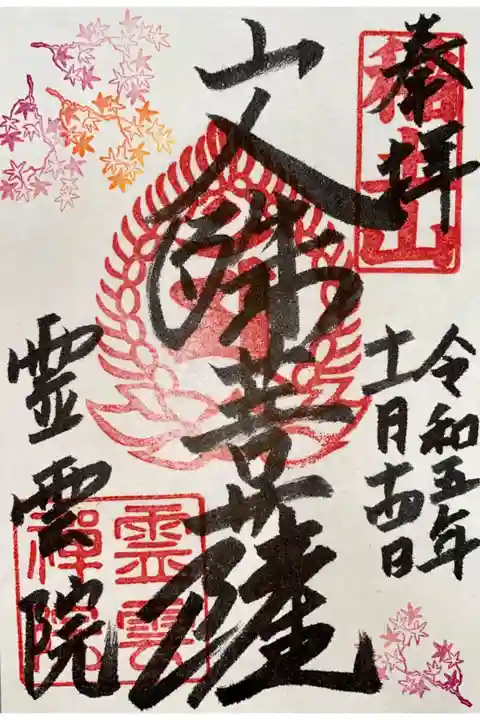 奉拝
令和五年
十一月十四日
菩薩
霊雲院
霊雲
禪院